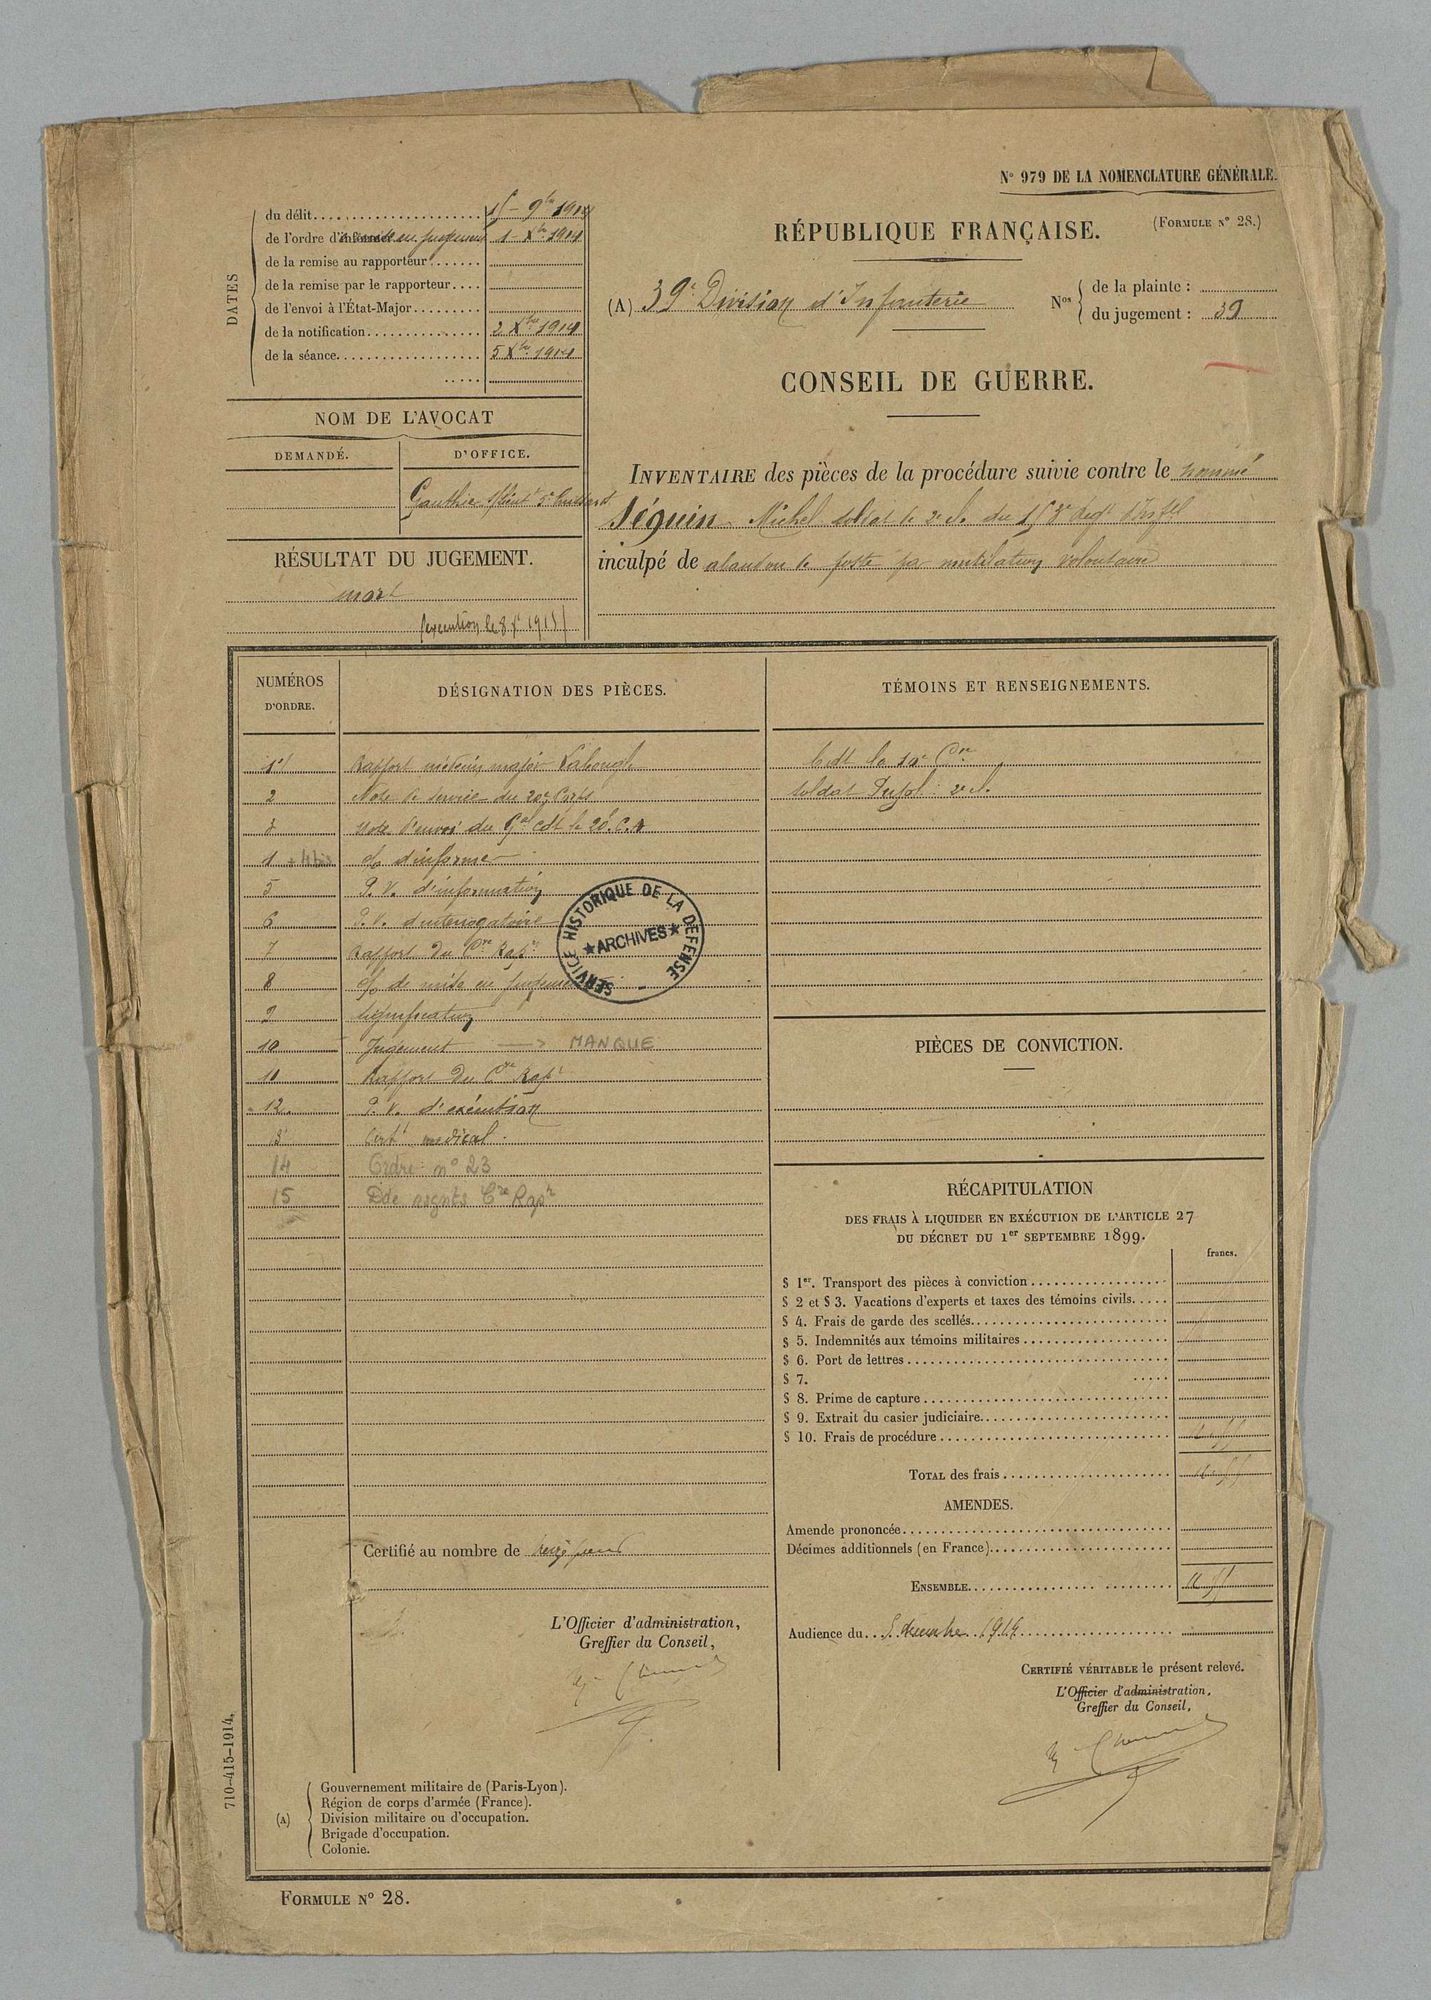 N° 979 DE LA NOMENCLATURE GÉNÉRALE.
(FORMULE N° 28.)
DATES
du délit 9bre 1914
de l'ordre d' mise en jugement 1 Xbre 1914
de la remise au rapporteur
de la remise par le rapporteur
de l'envoi à l'État-Major
de la notification 2 Xbre 1914
de la séance 5 Xbre 1914
NOM DE L'AVOCAT
DEMANDÉ.
D'OFFICE.
Gauthier
RÉSULTAT DU JUGEMENT.
mort
RÉPUBLIQUE FRANÇAISE.
(A) 39e Division d'Infanterie
Nos
de la plainte :
du jugement : 39
CONSEIL DE GUERRE.
INVENTAIRE des pièces de la procédure suivie contre le nommé
Séguin Michel soldat de 2e cl. du 153e Regt d'Inftie
inculpé de abandon de poste par mutilation volontaire
NUMÉROS
D'ORDRE.
DÉSIGNATION DES PIÈCES.
TÉMOINS ET RENSEIGNEMENTS.
1 Rapport médecin major
2 Note de service du 20e Corps
3 Note d'envoi du Gal Cdt le 20e C.A
d'informer
5 P.V. d'information
6 P.V. d'interrogatoire
7 Rapport du Cre Rapr
8 de mise en jugement
9 signification
10 Jugement → MANQUE
11 Rapport du Cre Rapr
12 P.V. d'exécution
13 Cert médical.
14 Ordre n° 23
15 Dde Cre Rapr
Cdt la Cie
Soldat 2e cl.
SERVICE HISTORIQUE DE LA DÉFENSE
★ARCHIVES★
PIÈCES DE CONVICTION.
RÉCAPITULATION
DES FRAIS À LIQUIDER EN EXÉCUTION DE L'ARTICLE 27
DU DÉCRET DU 1er SEPTEMBRE 1899.
francs.
§ 1er. Transport des pièces à conviction
§ 2 et § 3. Vacations d'experts et taxes des témoins civils.
§ 4. Frais de garde des scellés.
§ 5. Indemnités aux témoins militaires
§ 6. Port de lettres
§ 7.
§ 8. Prime de capture
§ 9. Extrait du casier judiciaire.
§ 10. Frais de procédure
TOTAL des frais
AMENDES.
Amende prononcée
Décimes additionnels (en France).
ENSEMBLE
Audience du 5 décembre 1914
CERTIFIÉ VÉRITABLE le présent relevé.
L'Officier d'administration,
Greffier du Conseil,
Certifié au nombre de
L'Officier d'administration,
Greffier du Conseil,
710-415-1914.
(A)
Gouvernement militaire de (Paris-Lyon).
Région de corps d'armée (France).
Division militaire ou d'occupation.
Brigade d'occupation.
Colonie.
FORMULE N° 28.